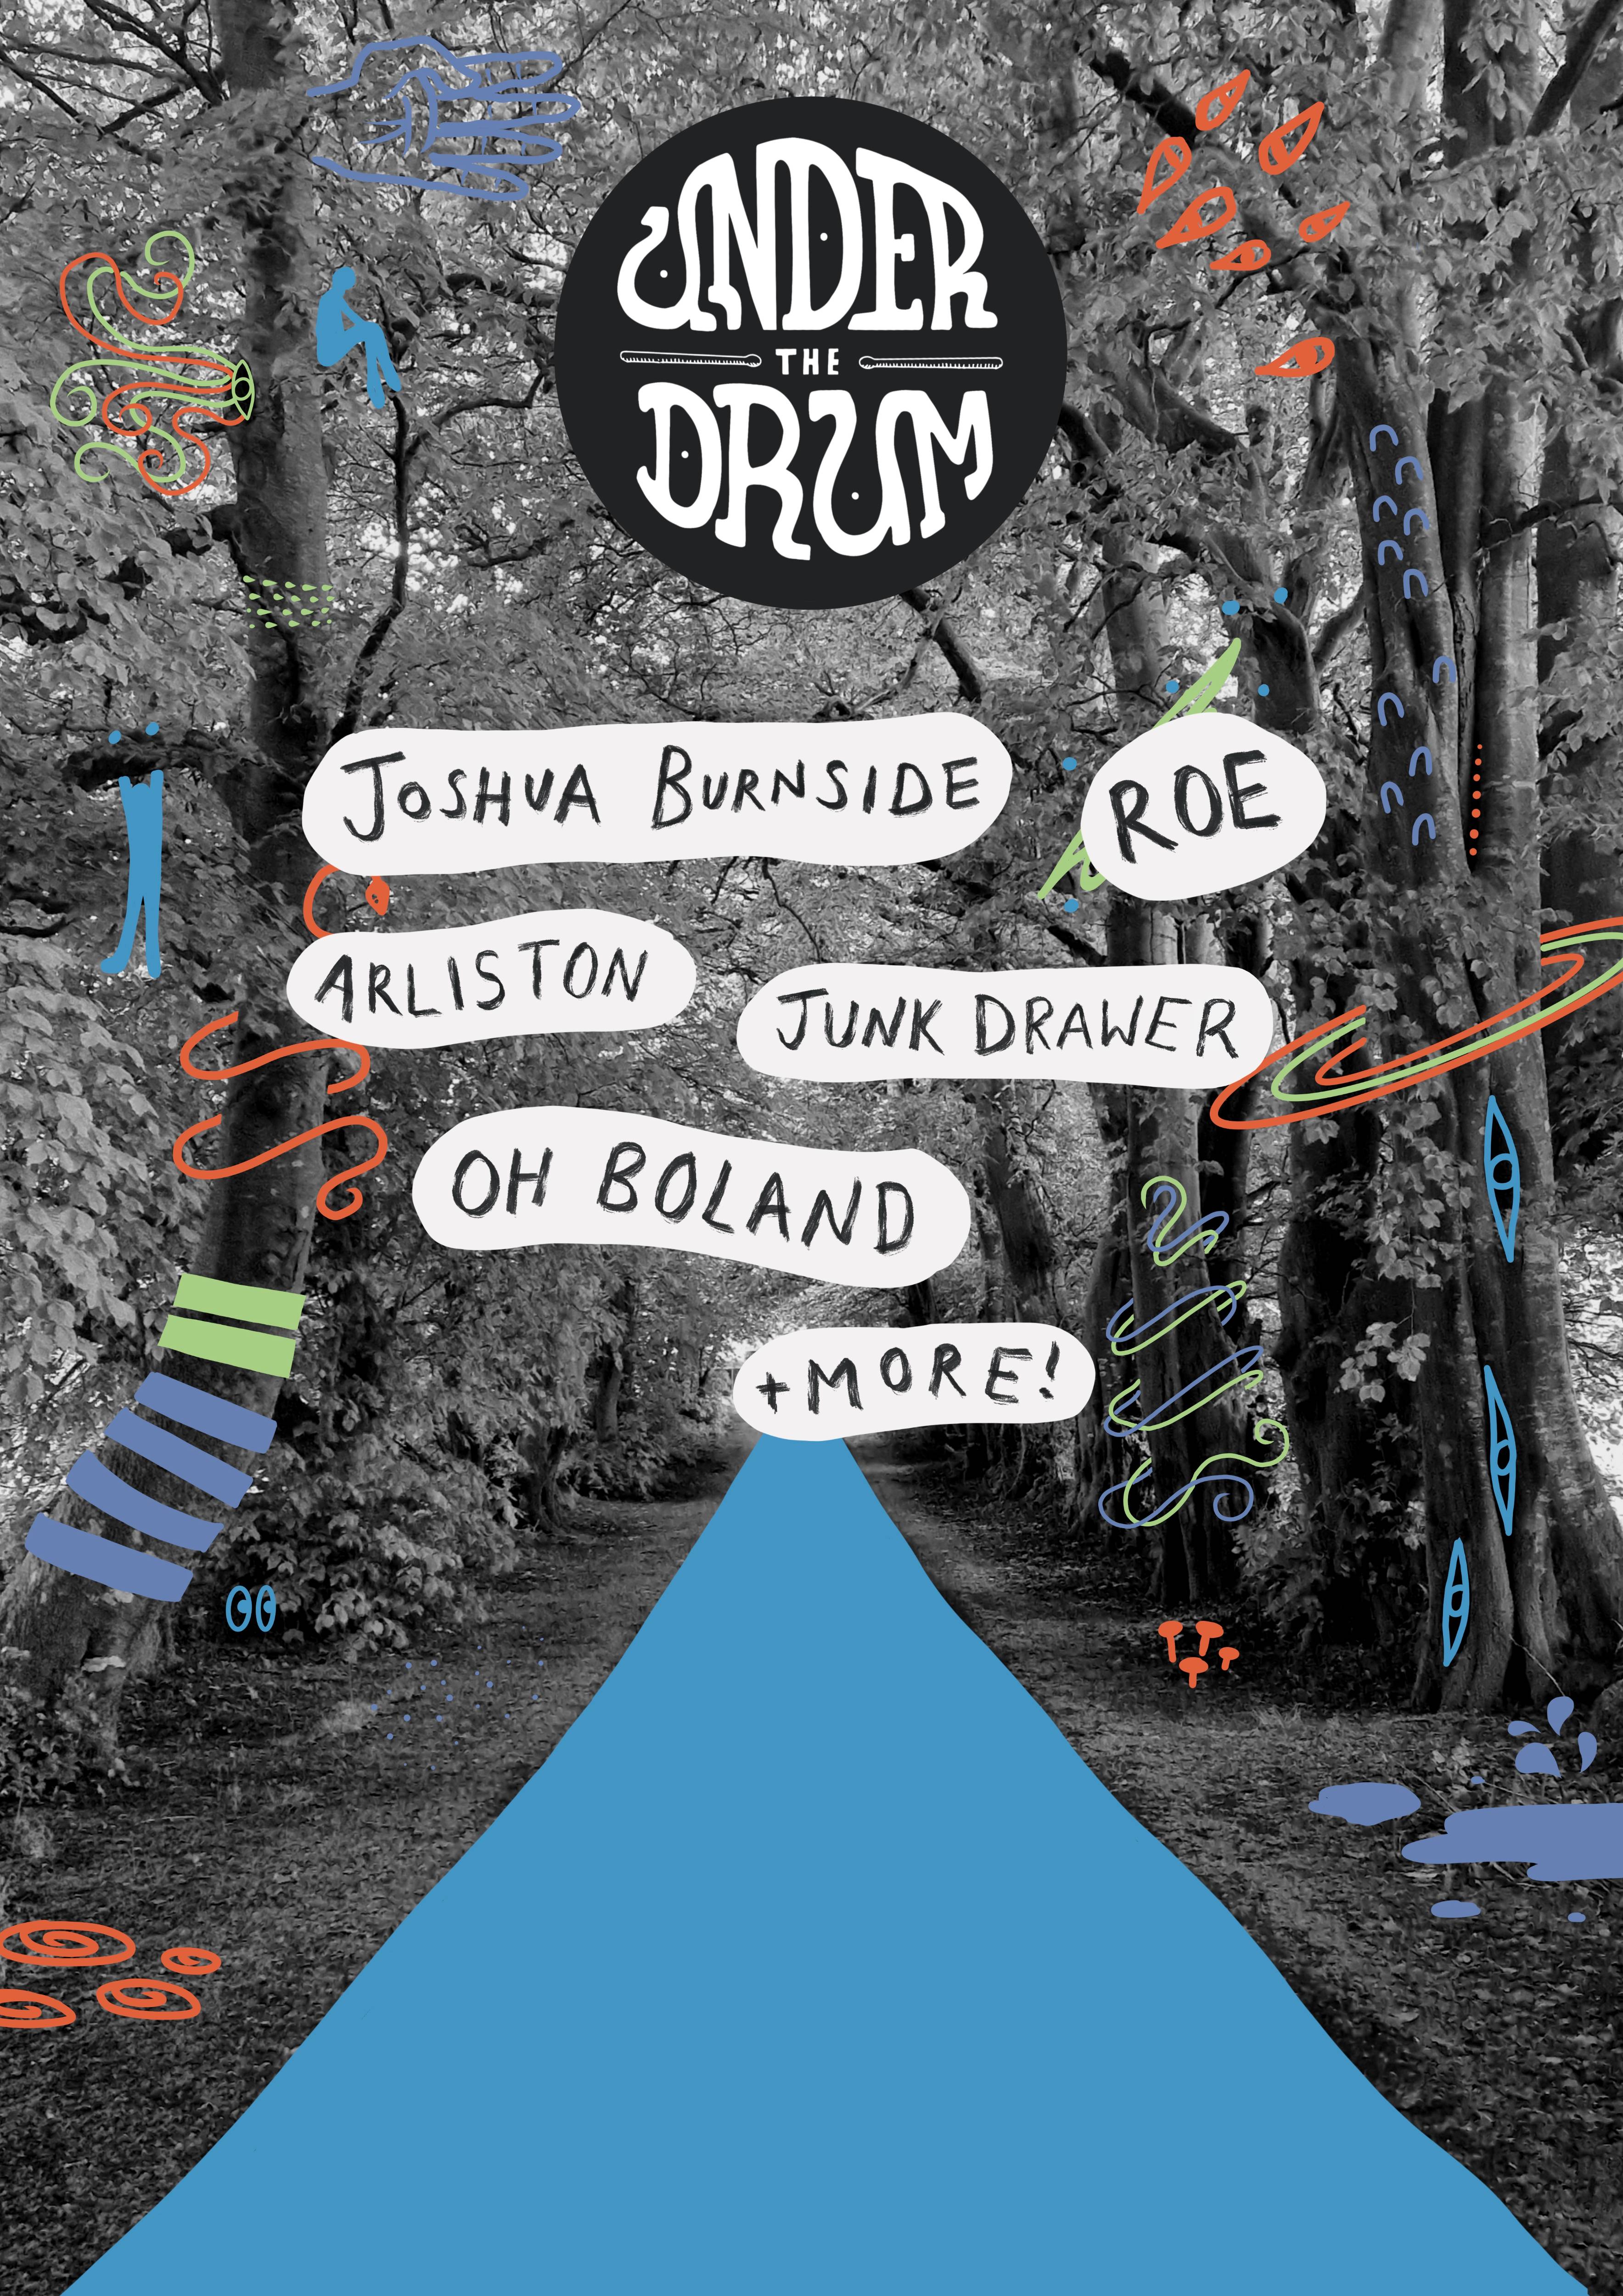 UNDER
THE
DRUM
JOSHUA BURNSIDE
ROE
ARLISTON
JUNK DRAWER
OH BOLAND
+MORE!